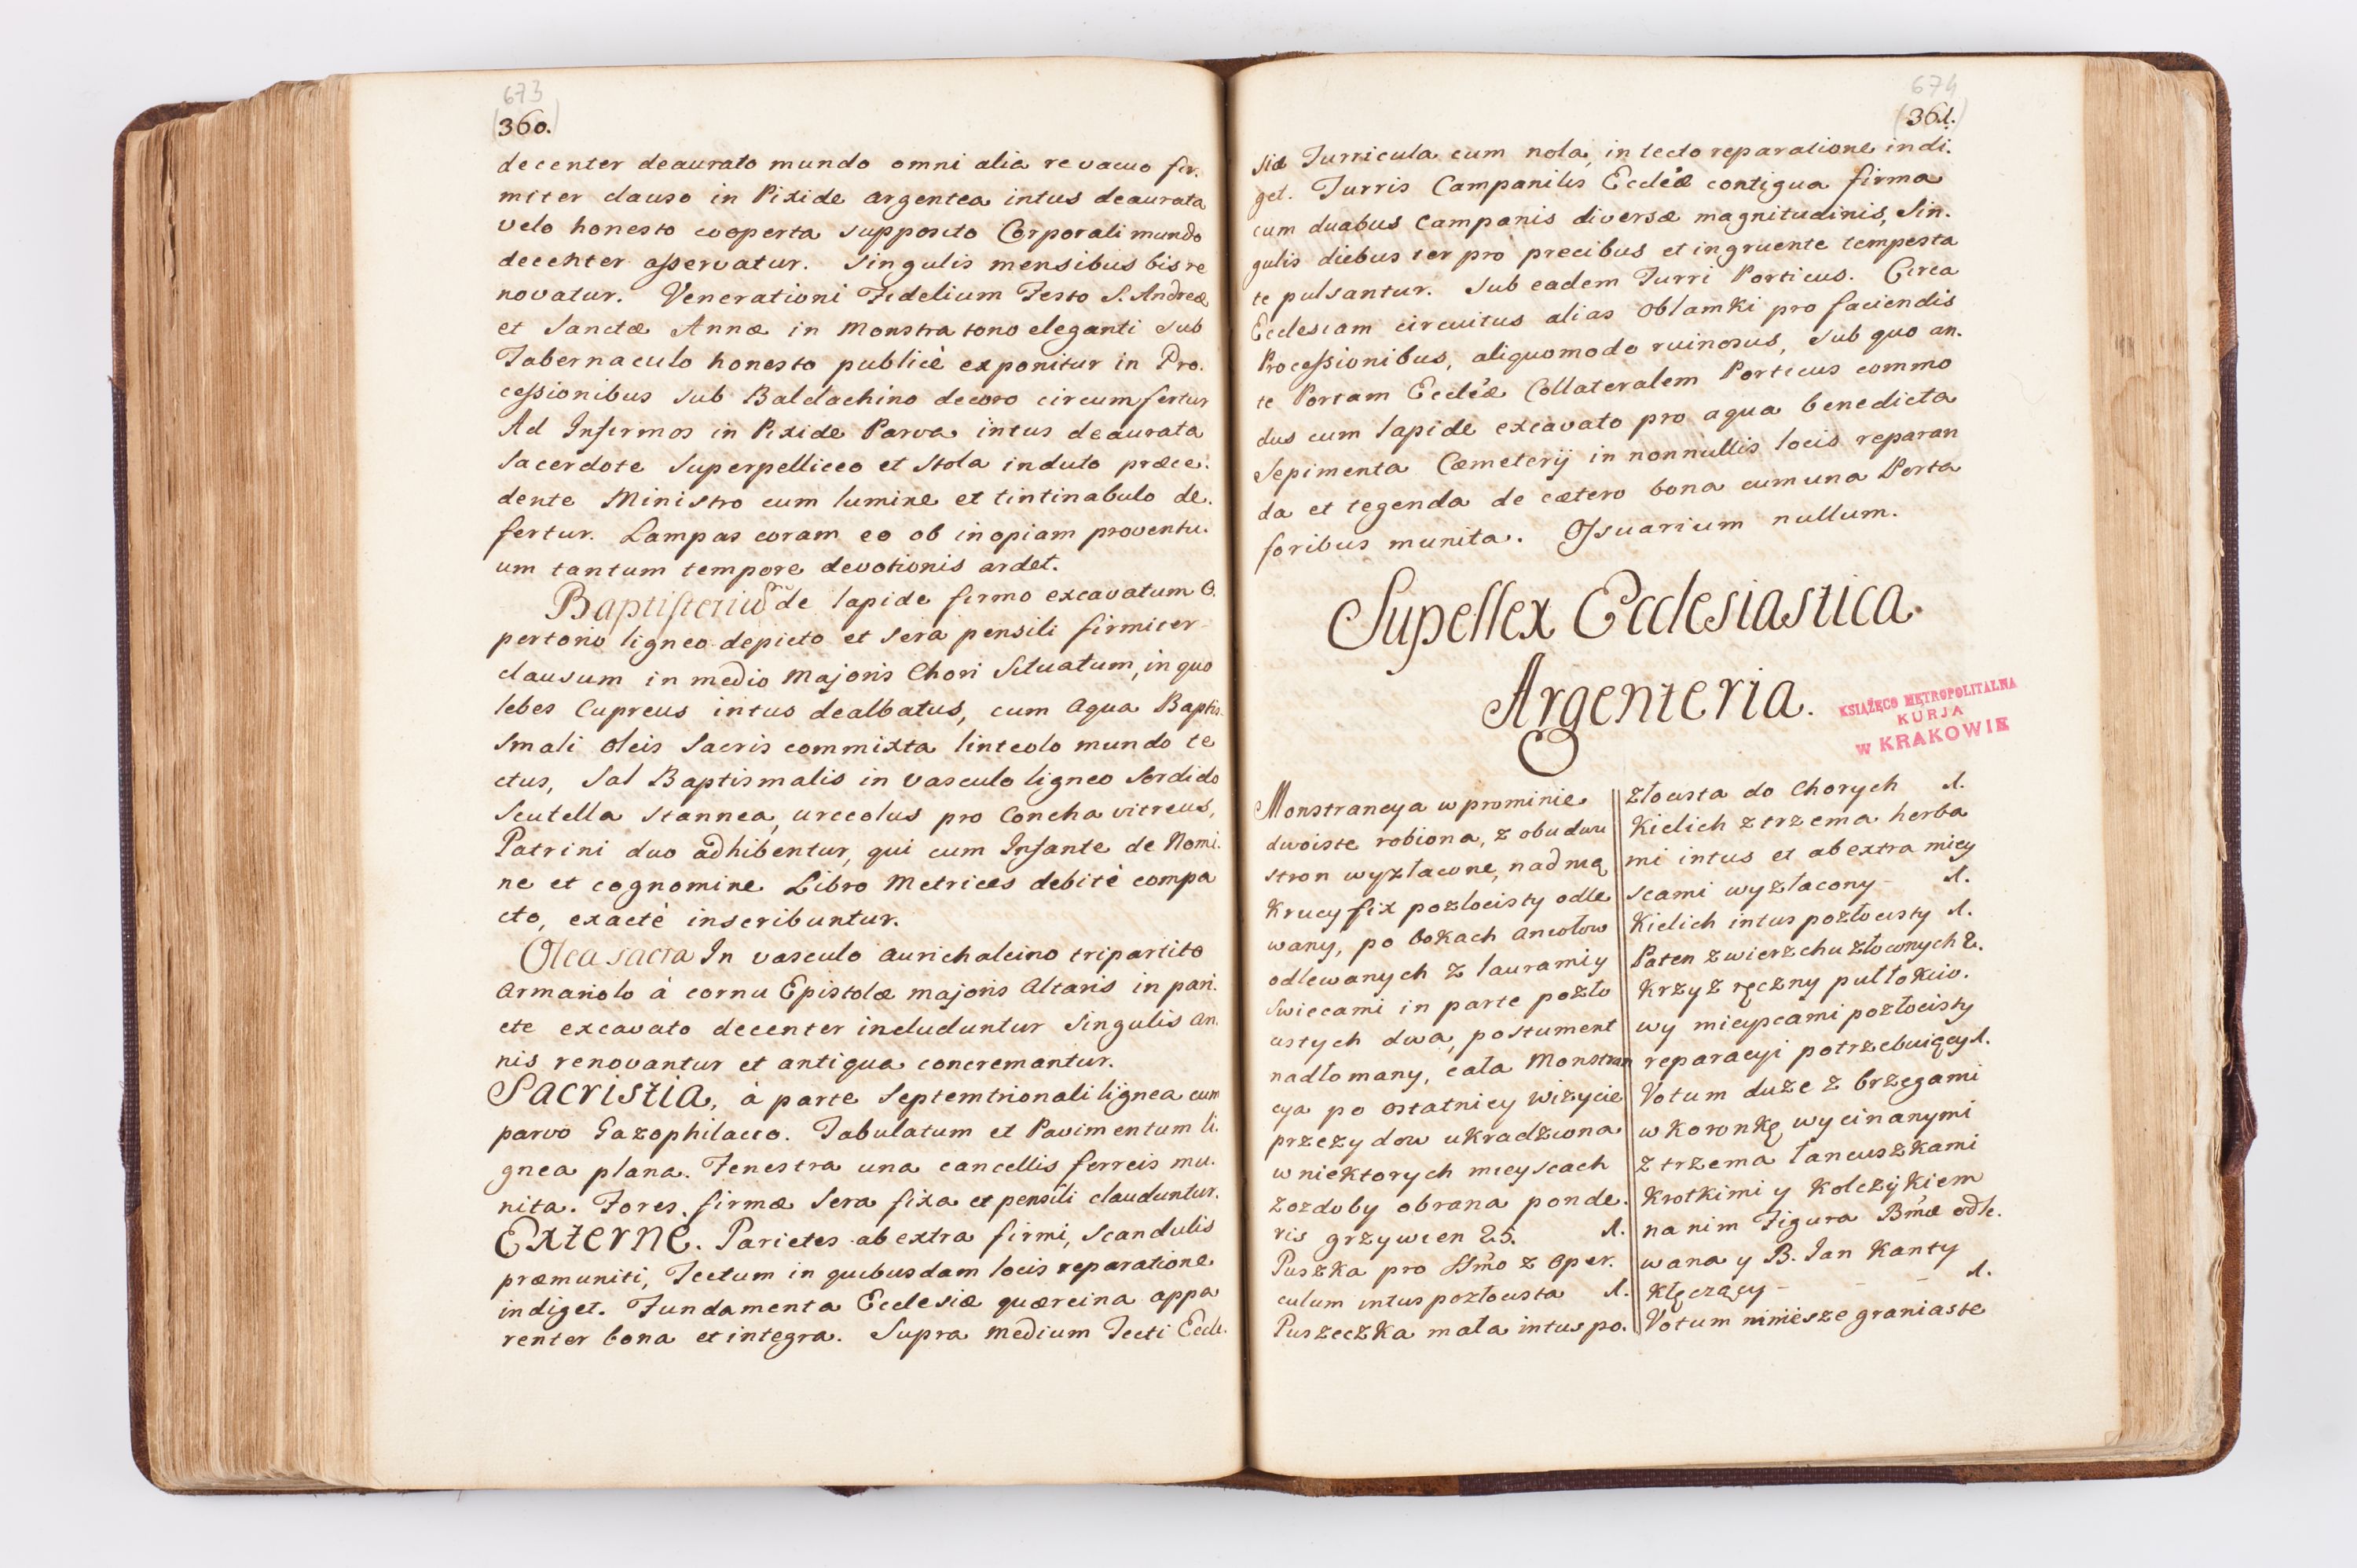 673
(360.)
decenter deaurato mundo omni alia re vacuo fir.
miter clauso in Pixide argentea intus deaurata
velo honesto cooperta supposito Corporali mundo
decenter asservatur. Singulis mensibus bis re
novatur. Venerationi Fidelium Festo S. Andreæ
et Sanctæ Annæ in Monstratorio eleganti sub
Tabernaculo honesto publicè exponitur in Pro.
cessionibus sub Baldachino decoro circumfertur
Ad Infirmos in Pixide Parva intus deaurata
Sacerdote Superpelliceo et Stola induto præce.
dente Ministro cum lumine et tintinabulo de.
fertur. Lampas coram eo ob inopiam proventu.
um tantum tempore devotionis ardet.
Baptisteriũ de lapide firmo excavatum O.
pertorio ligneo depicto et sera pensili firmiter
clausum in medio Majoris Chori Situatum, in quo
lebes Cupreus intus dealbatus, cum Aqua Baptis.
smali oleis Sacris commixta linteolo mundo te
ctus, Sal Baptismalis in vasculo ligneo sordido
Scutella Stannea, urceolus pro Concha vitreus,
Patrini duo adhibentur, qui cum Infante de Nomi.
ne et cognomine Libro Metrices debitè compa
cto, exactè inscribuntur.
Olea sacra In vasculo aurichalcino tripartito
Armariolo à cornu Epistolæ majoris Altaris in pari.
ete excavato decenter includuntur Singulis An.
nis renovantur et antiqua concremantur.
Sacristia, à parte Septemtrionali lignea cum
parvo Gazophilacio. Tabulatum et Pavimentum li.
gnea plana. Fenestra una cancellis ferreis mu.
nita. Fores firmæ Sera fixa et pensili clauduntur.
Externe. Parietes ab extra firmi, Scandulis
præmuniti, Tectum in quibusdam locis reparatione
indiget. Fundamenta Ecclesiæ quercina appa
renter bona et integra. Supra Medium Tecti Eccle.
674
(361.)
siæ Turricula cum nola, in tecto reparatione indi.
get. Turris Campanilis Eccleæ contigua firma
cum duabus Campanis diversæ magnitudinis, Sin.
gulis diebus ter pro precibus et ingruente tempesta
te pulsantur. Sub eadem Turri Porticus. Circa
Ecclesiam circuitus alias Oblamki pro faciendis
Processionibus, aliquomodo ruinosus, sub quo an.
te Portam Eccleæ Collateralem Porticus commo
dus cum lapide excavato pro aqua benedicta
Sepimenta Cæmeterij in nonnullis locis reparan
da et tegenda de cætero bona cum una Porta
foribus munita. Ossuarium nullum.
Supellex Ecclesiastica.
Argenteria.
KSIĄŻĘCO METROPOLITALNA
KURJA
w KRAKOWIE
Monstrancya w prominie
dwoiste robiona, z obudwu
stron wyzłacone, nad nią
Krucyfix pozłocisty odle
wany, po bokach Aniołow
odlewanych z lauramiy
Swiecami in parte pozło
cistych dwa, postument
nadłomany, cała Monstran
cya po ostatniey Wizycie
przezydow ukradziona
w niektorych mieyscach
zozdoby obrana ponde.
ris grzywien 25. 1.
Puszka pro SSmo z Oper.
culum intus pozłocista 1.
Puszeczka mała intus po.
złocista do Chorych 1.
Kielich z trzema herba
mi intus et ab extra miey
scami wyzłacony 1.
Kielich intus pozłocisty 1.
Paten z wierzchu złoconych 2.
Krzyz ręczny pułłokcio.
wy mieyscami pozłocisty
reparacyi potrzebuiący 1.
Votum duze z brzegami
w koronkę wycinanymi
z trzema łancuszkami
krotkimi y kolczykiem
na nim Figura Bmæ odle.
wana y B. Jan Kanty
klęczący - - - 1.
Votum mnieysze graniaste